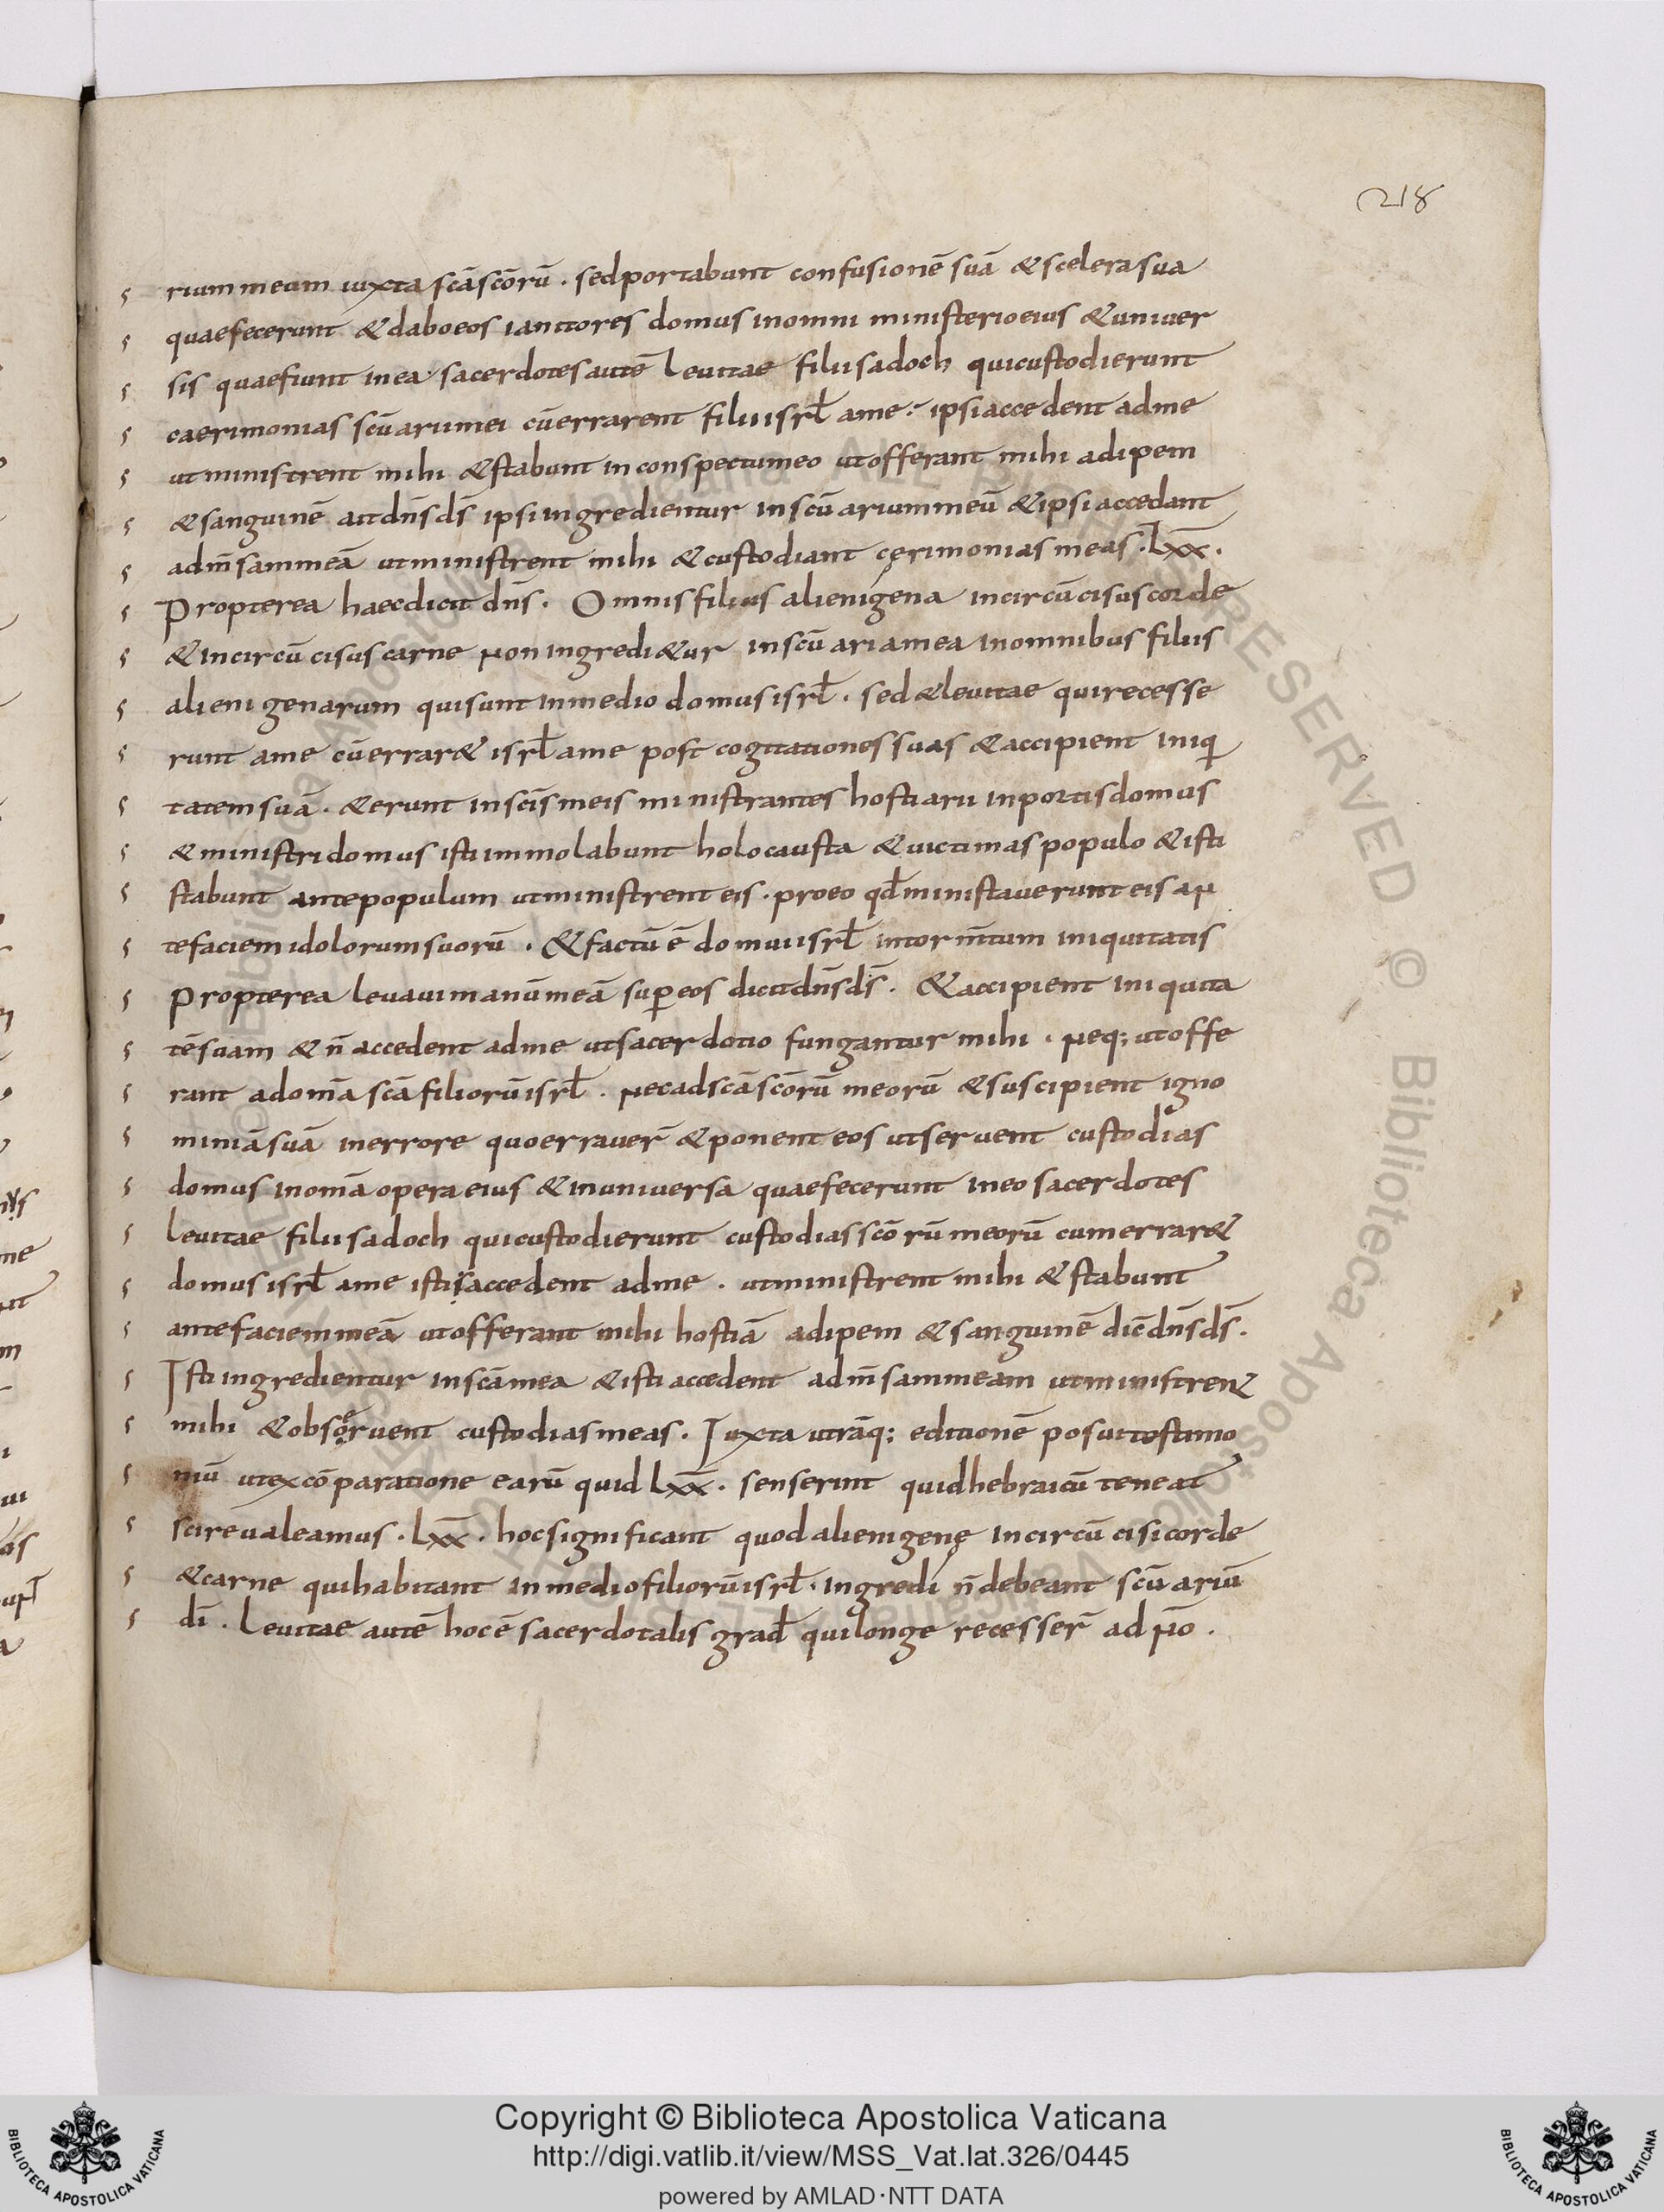 218
rium meum iuxta scā scōrū . sed portabunt confusionē suā & scelera sua
quae fecerunt & dabo eos ianitores domus in omni ministerio eius & univer
sis quae fiunt in ea sacerdotes autē Levitae filii sadoch qui custodierunt
caerimonias scūarii mei cū errarent filii isrł a me : ipsi accedent ad me
ut ministrent mihi & stabunt in conspectu meo ut offerant mihi adipem
& sanguinē ait dn̄s ds̄ ipsi ingredientur in scūarium meū & ipsi accedant
ad mn̄sam meā ut ministrent mihi & custodiant cęrimonias meas . Lxx .
Propterea haec dicit dn̄s . Omnis filius alienigena incircūcisus corde
& incircūcisus carne non ingredi&ur in scūaria mea in omnibus filiis
alienigenarum qui sunt in medio domus isrł . sed & levitae qui recesse
runt a me cū errar& isrł a me post cogitationes suas & accipient iniqi
tatem suā . & erunt in scīs meis ministrantes hostiarii in portis domus
& ministri domus isti immolabunt holocausta & victimas populo & isti
stabunt ante populum ut ministrent eis . pro eo qđ ministaverunt eis an
te faciem idolorum suorū . & factū ē domui isrł in torm̄tum iniquitatis
Propterea levavi manū meā sup eos dicit dn̄s ds̄ . & accipient iniquita
tē suam & n̄ accedent ad me ut sacerdotio fungantur mihi . neq; ut offe
rant ad omā scā filiorū isrł . nec ad scā scōrū meorū & suscipient igno
miniā suā in errore quo erraver̄ & ponent eos ut servent custodias
domus in omā opera eius & in universa quae fecerunt in eo sacerdotes
levitae filii sadoch qui custodierunt custodias scōrū meorū cum errar&
domus isrł a me isti accedent ad me . ut ministrent mihi & stabunt
ante faciem meā ut offerant mihi hostiā adipem & sanguinē dic̄ dn̄s ds̄ .
Isti ingredientur in scā mea & isti accedent ad mn̄sam meam ut ministrent
mihi & observent custodias meas . Iuxta utrāq; editionē posui testimo
niū ut ex cōparatione earū quid Lxx . senserint quid hebraicū teneat
scire valeamus . Lxx . hoc significant quod alienigenę incircūcisi corde
& carne qui habitant in medio filiorū isrł . ingredi n̄ debeant scūariū
dī . Levitae autē hoc ē sacerdotalis grad qui longe recesser̄ ad n̄o .
Copyright © Biblioteca Apostolica Vaticana
http://digi.vatlib.it/view/MSS_Vat.lat.326/0445
powered by AMLAD·NTT DATA
BIBLIOTECA APOSTOLICA VATICANA
BIBLIOTECA APOSTOLICA VATICANA